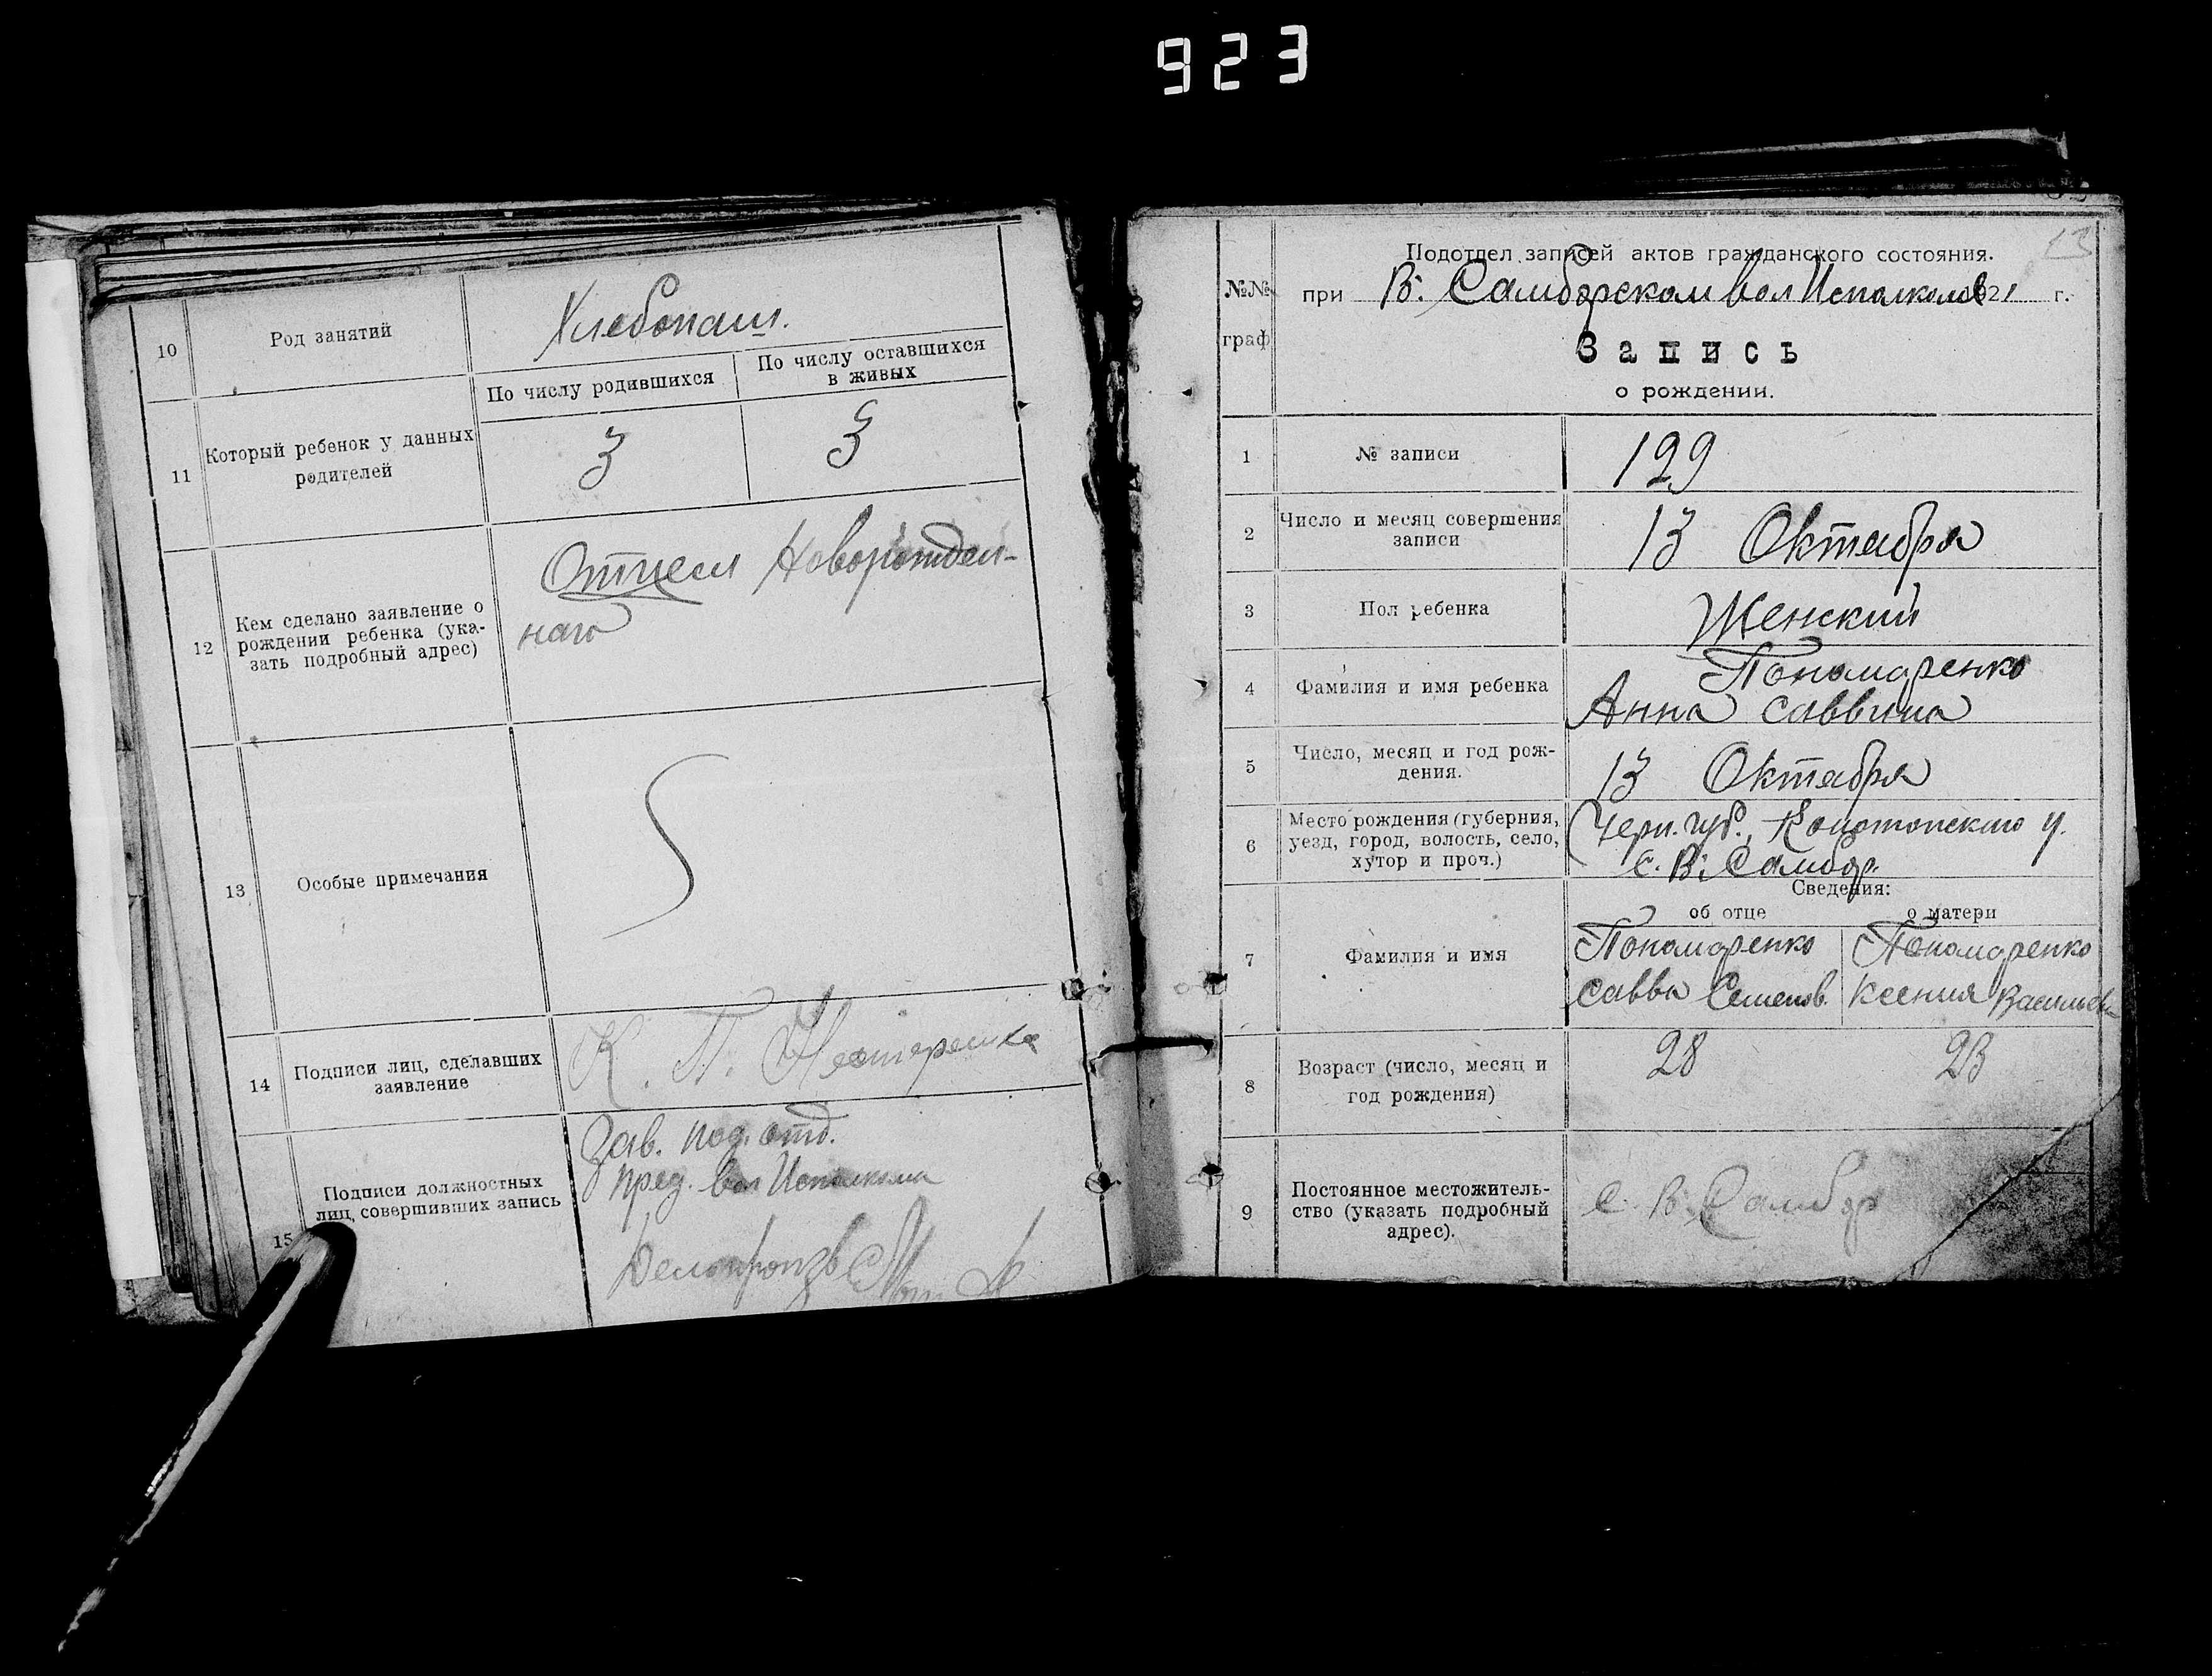 923
10
Род занятий
Хлебопаш.
По числу родившихся
По числу оставшихся
в живых
11
Который ребенок у данных
родителей
3
3
12
Кем сделано заявление о
рождении ребенка (ука-
зать подробный адрес)
Отцем Новорожден-
наго
13
Особые примечания
14
Подписи лиц, сделавших
заявление
К. П. Нестеренко
15
Подписи должностных
лиц, совершивших запись
Зав. под. отд.
Пред. вол Исполкома
Делопроизв
13
№№
граф
Подотдел записей актов гражданского состояния.
при В: Самборском вол Исполкоме 1921 г.
Запись
о рождении.
1
№ записи
129
2
Число и месяц совершения
записи
13 Октября
3
Пол ребенка
Женский
4
Фамилия и имя ребенка
Пономаренко
Анна Саввина
5
Число, месяц и год рож-
дения.
13 Октября
6
Место рождения (губерния,
уезд, город, волость, село,
хутор и проч.)
Черн. губ., Конотопскаго у.
с. В: Самбор.
Сведения:
об отце
о матери
7
Фамилия и имя
Пономаренко
Савва Семенов.
Пономаренко
Ксения Васильев
8
Возраст (число, месяц и
год рождения)
28
23
9
Постоянное местожитель-
ство (указать подробный
адрес).
с. В: Самбор